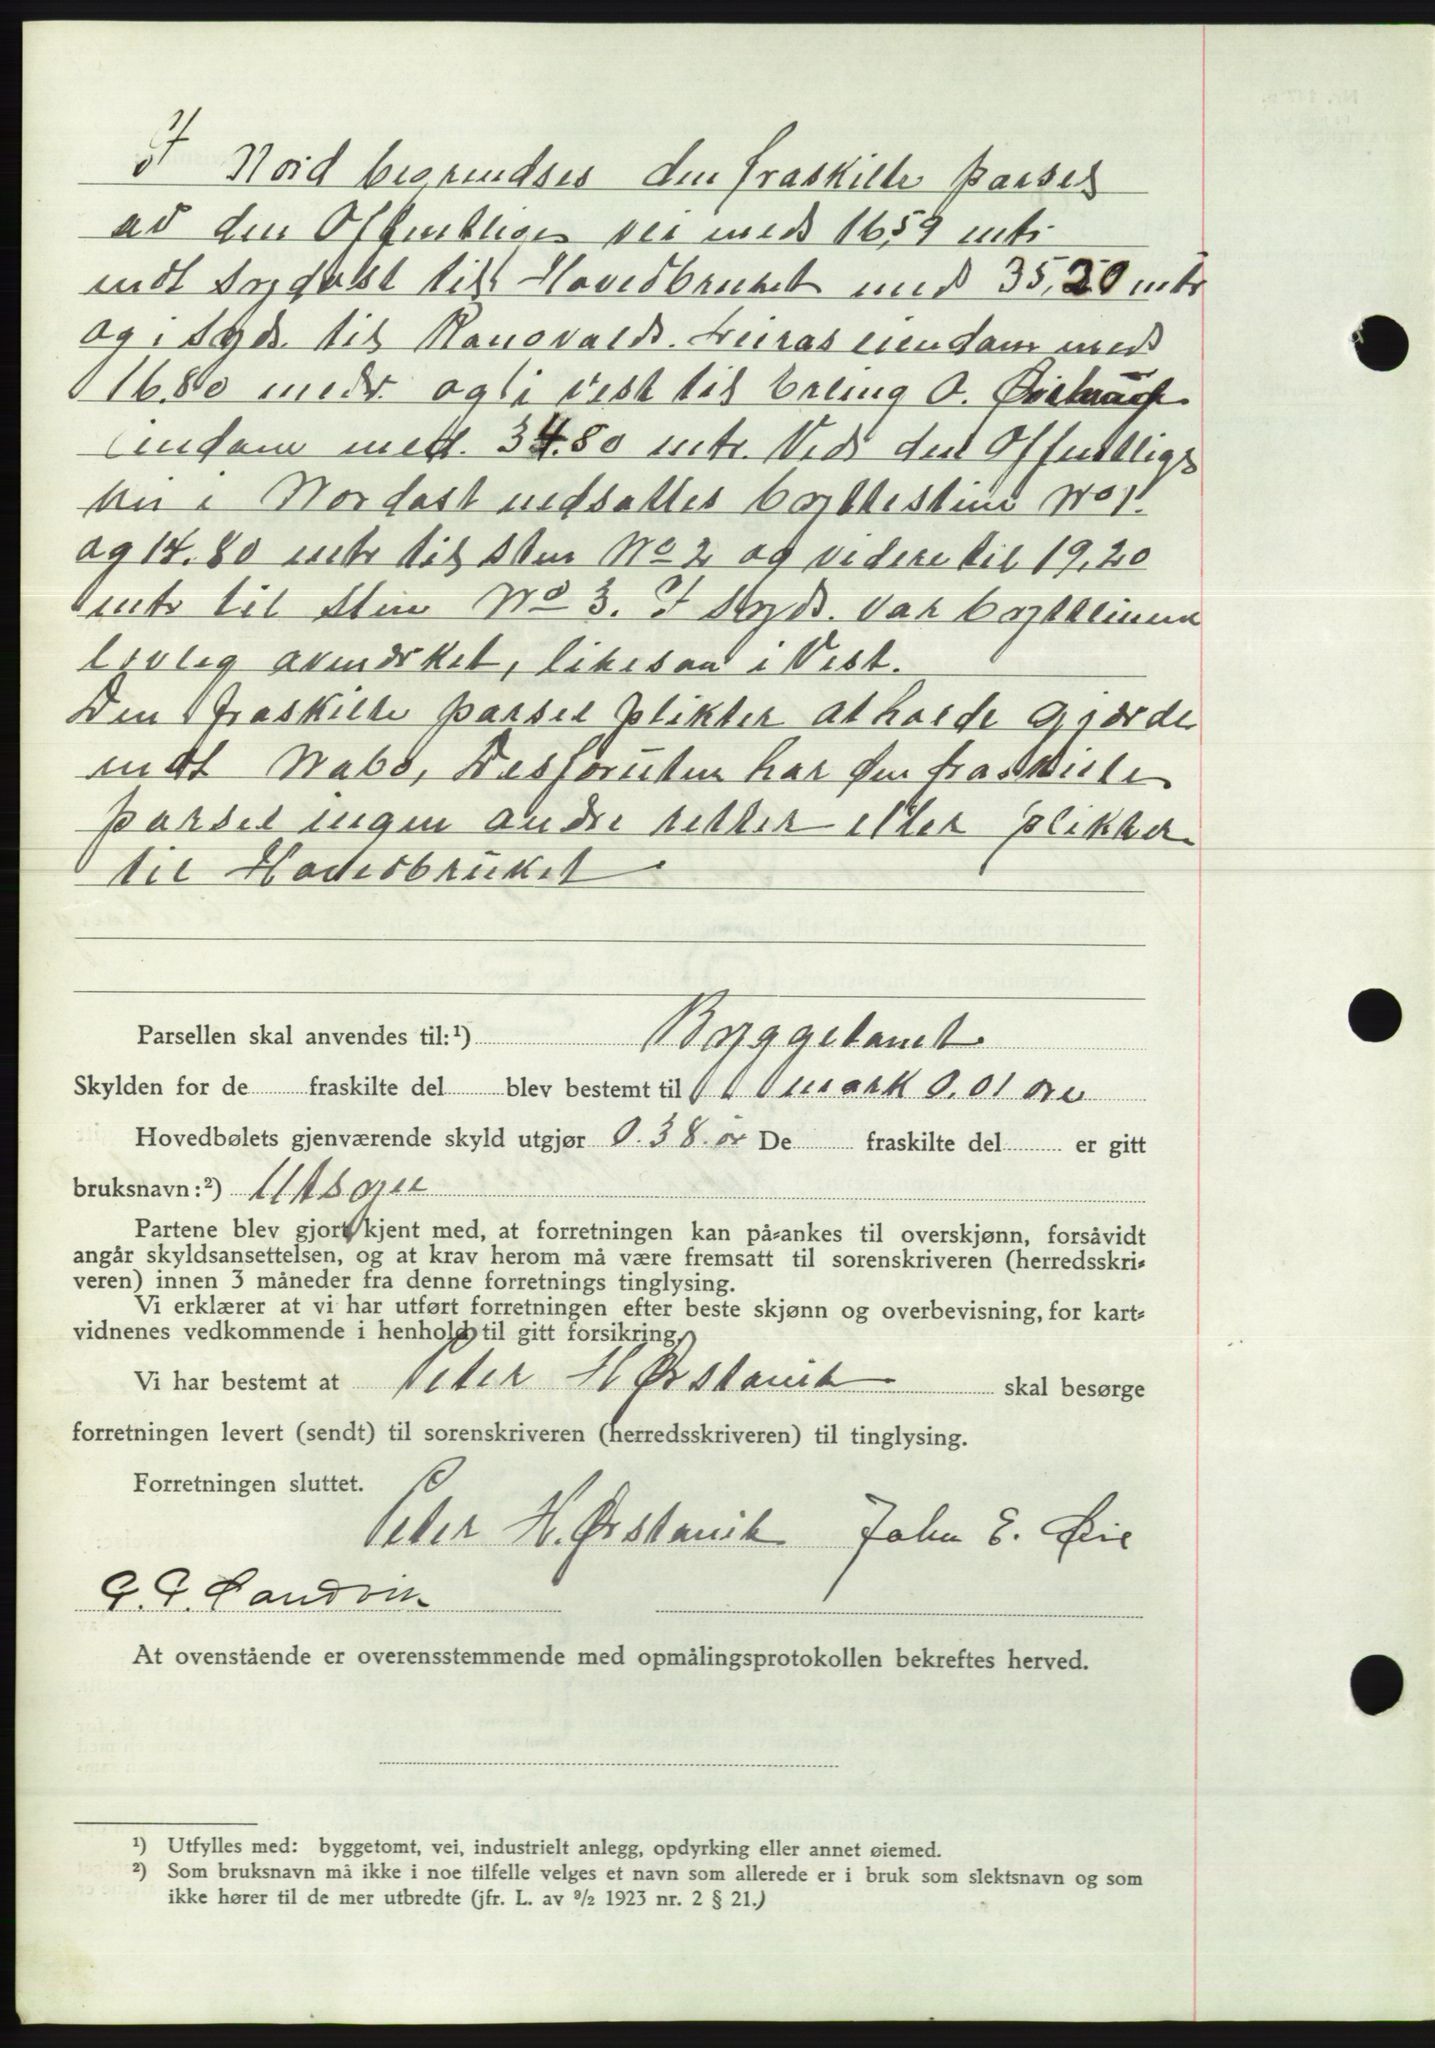 I Nord begrendses den fraskilte parsel
av den Offentlige vei med 16,59 mtr
mot sydøst til Hovedbruket med 35,20 mtr
og i Syd til Rangvald Leiras eiendom med
16.80 medr. og i vest til Erling O.
eindom med 34.80 mtr. Ved den Offentlige
vei i Nordøst nedsattes byttestine No 1.
og 14.80 mtr til sten No 2 og videre til 19,20
mtr til sten No 3. I syd var byttlinien
lovleg avmerket, likesaa i Vest.
Den fraskilte parsel plikter at holde gjærde
mot Nabo, Desforuten har den fraskilte
parsel ingen andre retter eller plikter
til Hovedbruket
Parsellen skal anvendes til:¹) Byggetomt
Skylden for de fraskilte del blev bestemt til mark 0.01 øre
Hovedbølets gjenværende skyld utgjør 0.38 ør De fraskilte del er gitt
bruksnavn:²) Utsyn
Partene blev gjort kjent med, at forretningen kan på-ankes til overskjønn, forsåvidt
angår skyldsansettelsen, og at krav herom må være fremsatt til sorenskriveren (herredsskri-
veren) innen 3 måneder fra denne forretnings tinglysing.
Vi erklærer at vi har utført forretningen efter beste skjønn og overbevisning, for kart-
vidnenes vedkommende i henhold til gitt forsikring.
Vi har bestemt at Peter H Ørstavik skal besørge
forretningen levert (sendt) til sorenskriveren (herredsskriveren) til tinglysing.
Forretningen sluttet.
Peter H. Ørstavik John E. Øie
Sandvik
At ovenstående er overensstemmende med opmålingsprotokollen bekreftes herved.
¹) Utfylles med: byggetomt, vei, industrielt anlegg, opdyrking eller annet øiemed.
²) Som bruksnavn må ikke i noe tilfelle velges et navn som allerede er i bruk som slektsnavn og som
ikke hører til de mer utbredte (jfr. L. av ⁹/₂ 1923 nr. 2 § 21.)